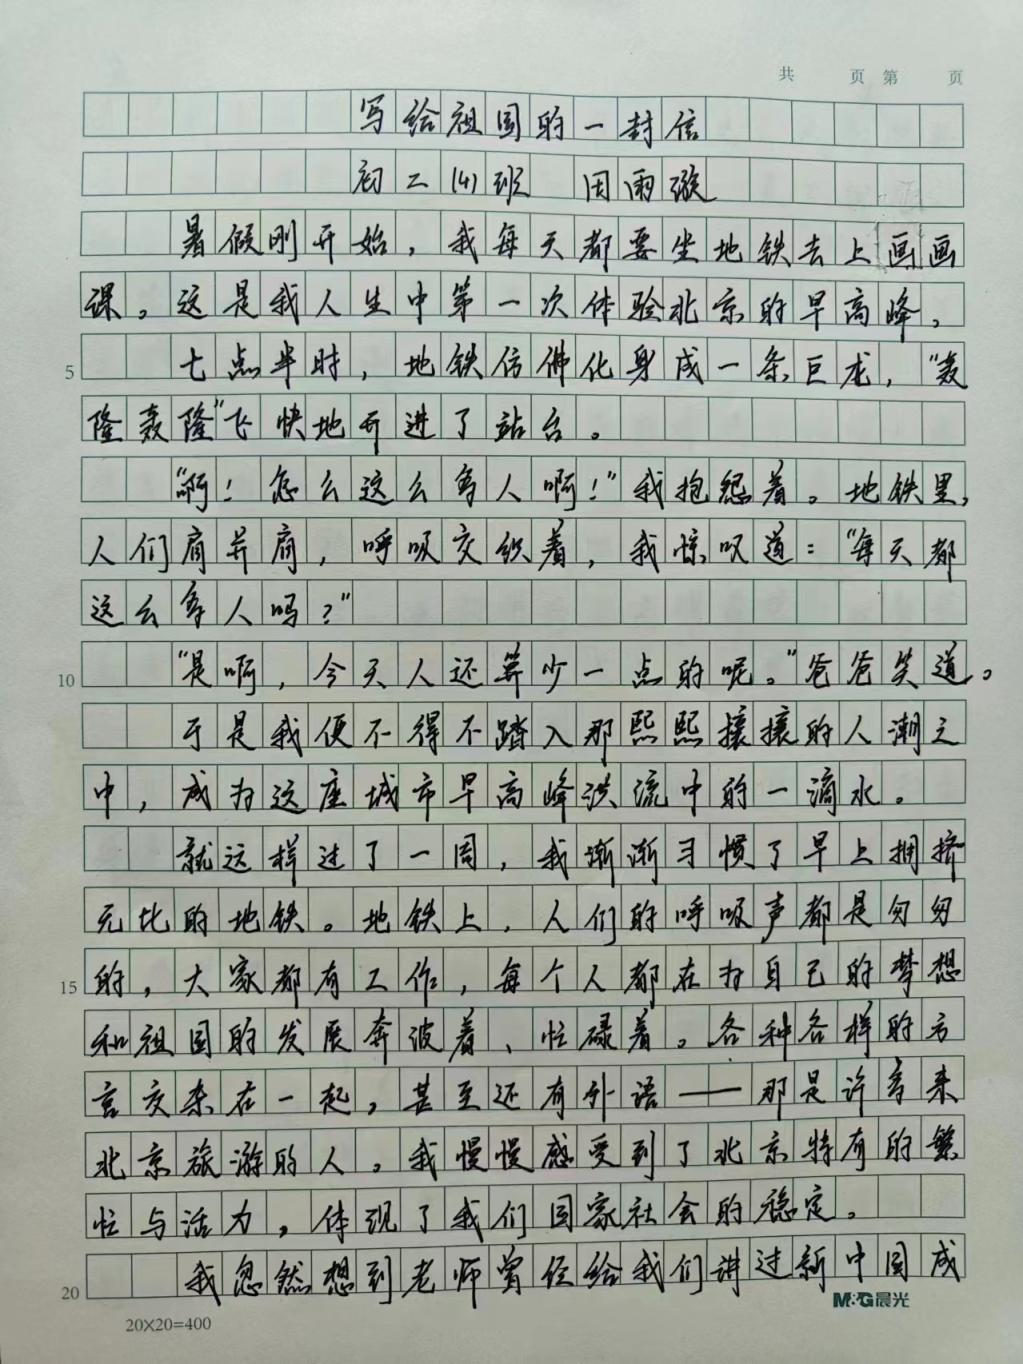 共 页 第 页
写给祖国的一封信
初二(4)班 田雨璇
暑假刚开始，我每天都要坐地铁去上画画
课。这是我人生中第一次体验北京的早高峰。
5 七点半时，地铁仿佛化身成一条巨龙，“轰
隆轰隆”飞快地开进了站台。
“啊！怎么这么多人啊！”我抱怨着。地铁里，
人们肩并肩，呼吸交织着，我惊叹道：“每天都
这么多人吗？”
10 “是啊，今天人还算少一点的呢。”爸爸笑道。
于是我便不得不踏入那熙熙攘攘的人潮之
中，成为这座城市早高峰洪流中的一滴水。
就这样过了一周，我渐渐习惯了早上拥挤
无比的地铁。地铁上，人们的呼吸声都是匆匆
15 的，大家都有工作，每个人都在为自己的梦想
和祖国的发展奔波着、忙碌着。各种各样的方
言交杂在一起，甚至还有外语——那是许多来
北京旅游的人。我慢慢感受到了北京特有的繁
忙与活力，体现了我们国家社会的稳定。
20 我忽然想到老师曾经给我们讲过新中国成
M&G晨光
20×20=400